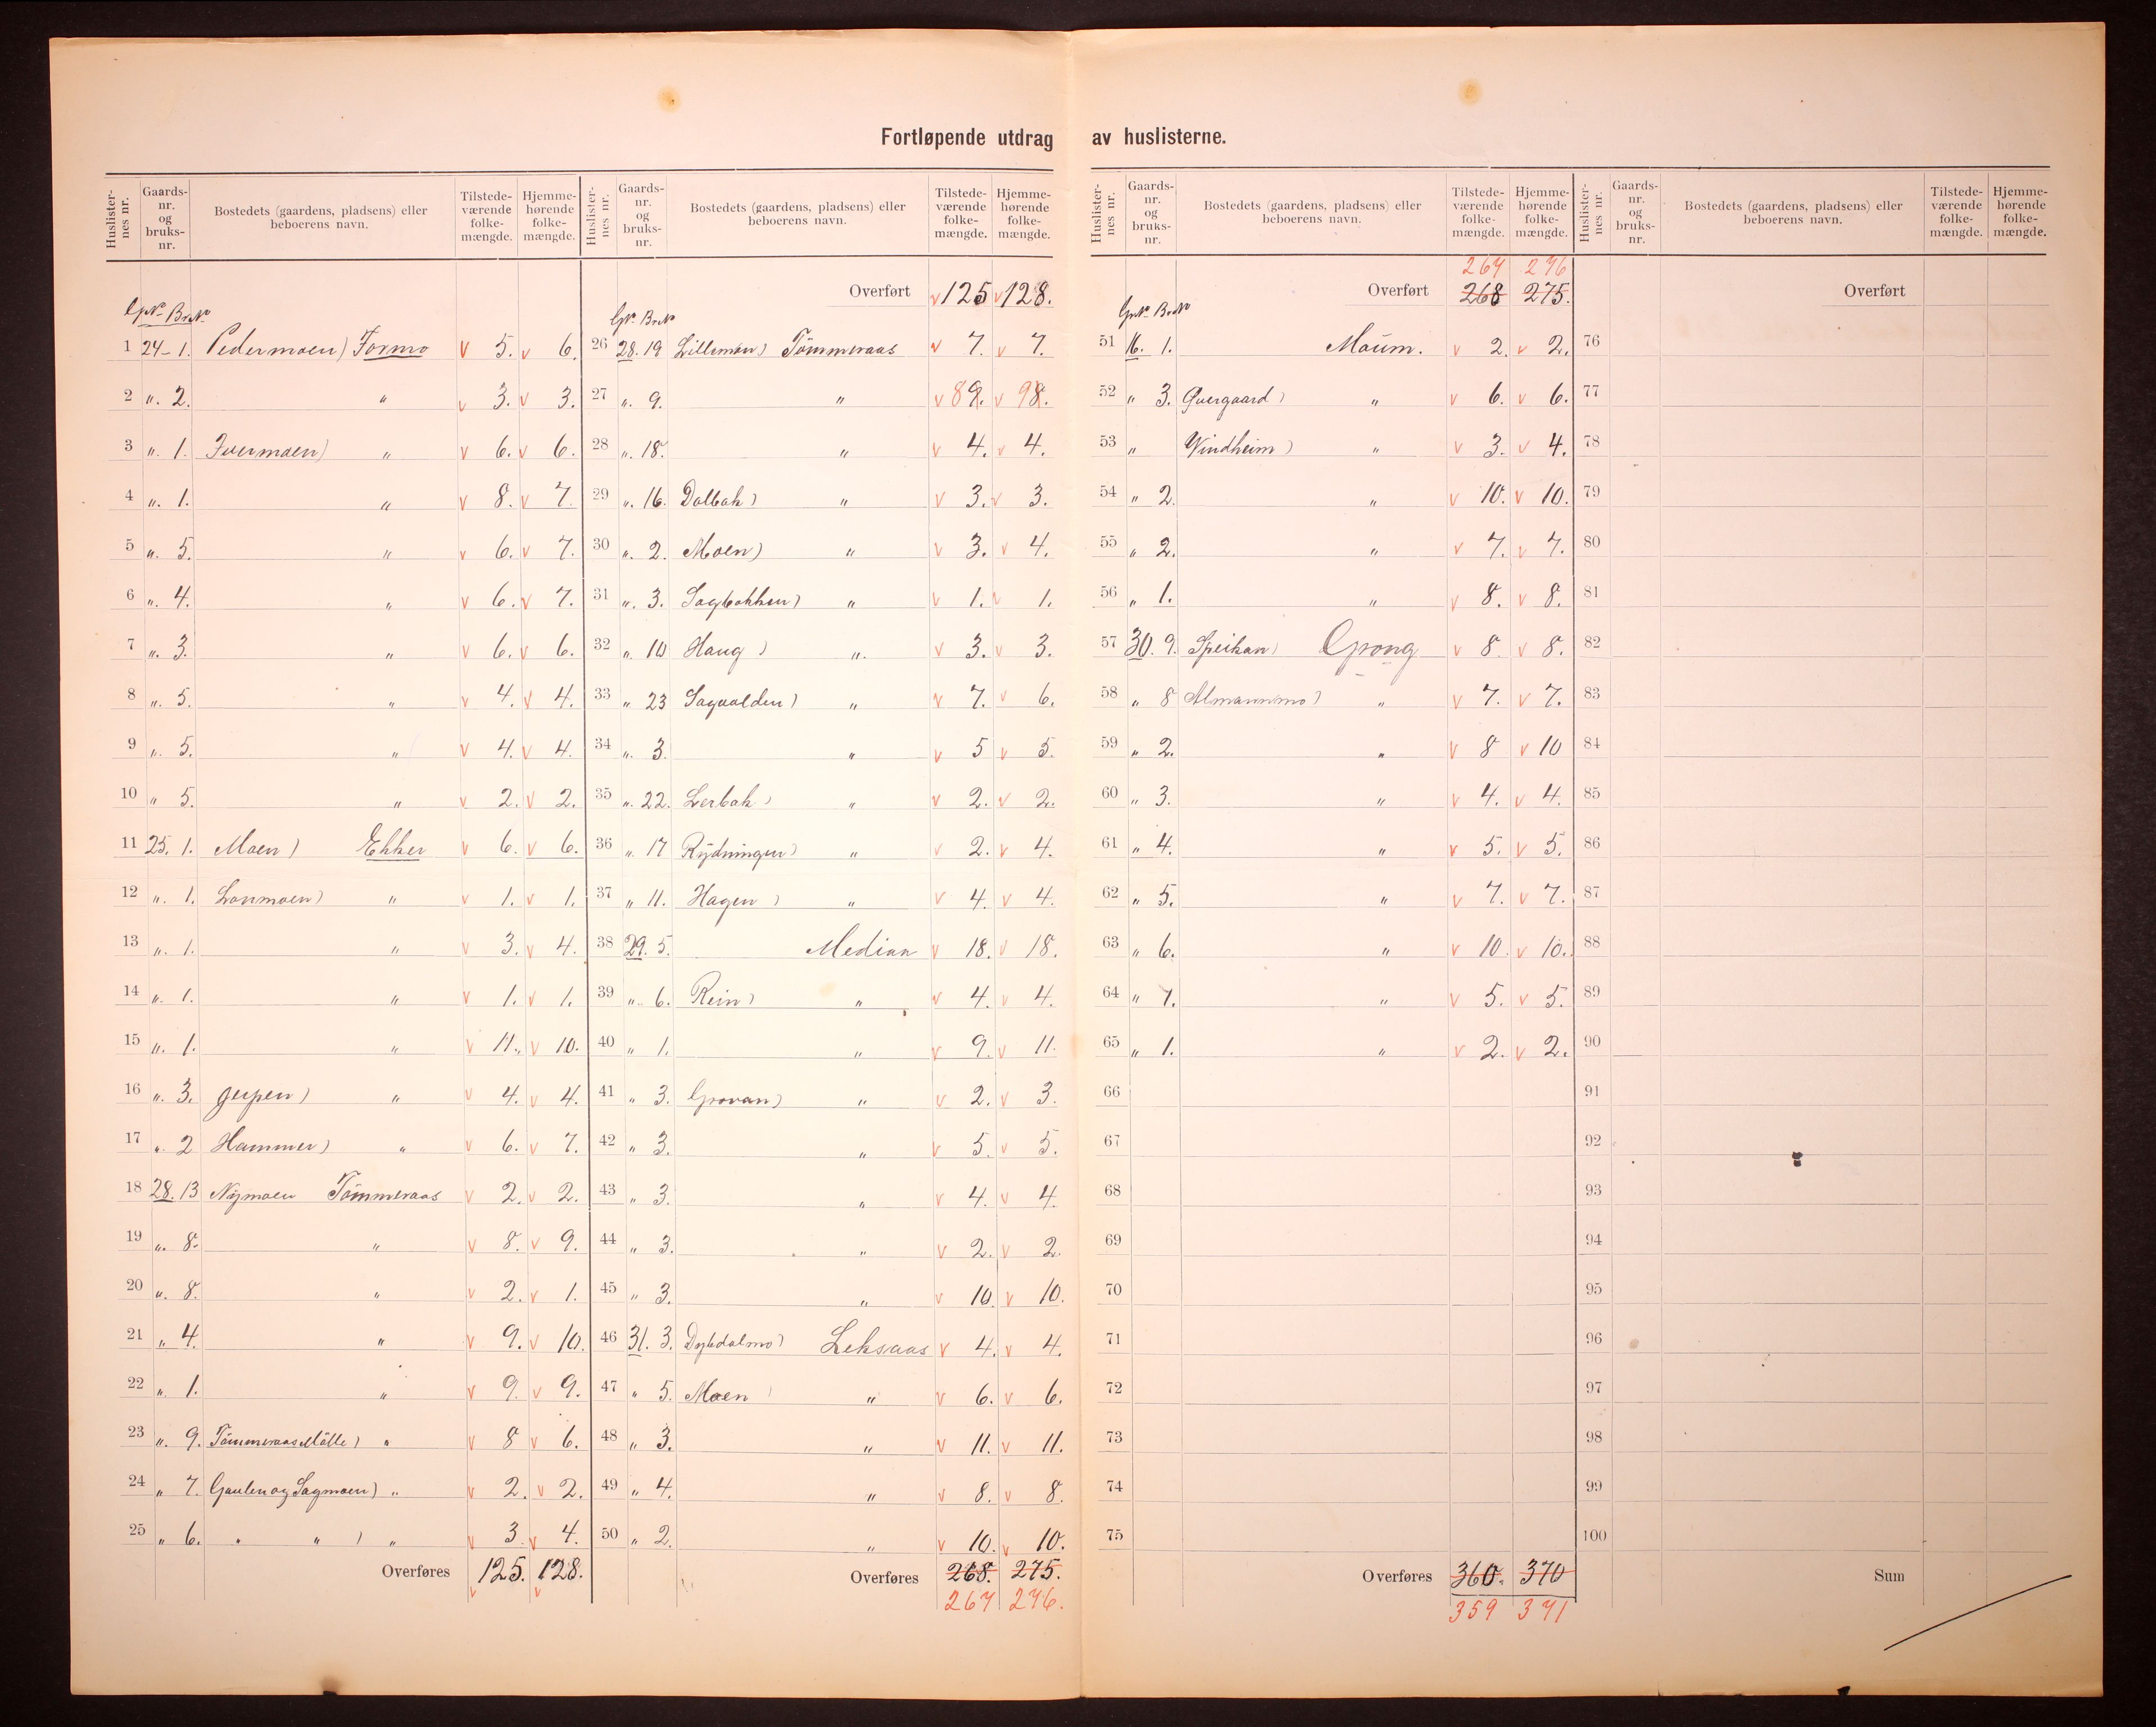 Fortløpende utdrag av huslisterne.
Huslister-nes nr. Gaards-nr. og bruks-nr. Bostedets (gaardens, pladsens) eller beboerens navn. Tilstede-værende folke-mængde. Hjemme-hørende folke-mængde.
G.No Br.No
1 24-1. Pedermoen) Formo v 5. v 6.
2 ". 2. " v 3. v 3.
3 ". 1. Ivermoen) " v 6. v 6.
4 ". 1. " v 8. v 7.
5 ". 5. " v 6. v 7.
6 ". 4. " v 6. v 7.
7 ". 3. " v 6. v 6.
8 ". 5. " v 4. v 4.
9 ". 5. " v 4. v 4.
10 " 5. " v 2. v 2.
11 25. 1. Moen) Ekker v 6. v 6.
12 ". 1. Lonmoen) " v 1. v 1.
13 ". 1. " v 3. v 4.
14 ". 1. " v 1. v 1.
15 ". 1. " v 11. v 10.
16 ". 3. Jerpen) " v 4. v 4.
17 ". 2 Hammer) " v 6. v 7.
18 28. 13 Nymoen Tömmeraas v 2. v 2.
19 ". 8. " v 8. v 9.
20 ". 8. " v 2. v 1.
21 ". 4. " v 9. v 10.
22 ". 1. " v 9. v 9.
23 ". 9. Tömmeraas Mölle) " v 8 v 6.
24 " 7. Gaulen og Sagmoen) " v 2. v 2.
25 " 6. " " ) " v 3. v 4.
Overføres 125. 128.
v v
Huslister-nes nr. Gaards-nr. og bruks-nr. Bostedets (gaardens, pladsens) eller beboerens navn. Tilstede-værende folke-mængde. Hjemme-hørende folke-mængde.
Overført v 125 v 128.
G.No Br.No
26 28. 19 Lillemoen) Tömmeraas v 7. v 7.
27 ". 9. " v 89. v 98.
28 ". 18. " v 4. v 4.
29 ". 16. Dalbak) " v 3. v 3.
30 ". 2. Moen) " v 3. v 4.
31 ". 3. Sagbakken) " v 1. v 1.
32 ". 10 Haug) ". v 3. v 3.
33 " 23 Sagvolden) " v 7. v 6.
34 ". 3. " v 5 v 5.
35 ". 22. Lerbak) " v 2. v 2.
36 ". 17 Rydningen) " v 2. v 4.
37 " 11. Hagen) " v 4. v 4.
38 29. 5. Mediaa v 18. v 18.
39 ". 6. Rein) " v 4. v 4.
40 " 1. " v 9. v 11.
41 " 3. Grovan) " v 2. v 3.
42 " 3. " v 5. v 5.
43 " 3. " v 4. v 4.
44 " 3. " v 2. v 2.
45 " 3. " v 10. v 10.
46 31. 3. Dybdalmo) Leksaas v 4. v 4.
47 " 5. Moen) " v 6. v 6.
48 " 3. " v 11. v 11.
49 " 4. " v 8. v 8.
50 " 2. " v 10. v 10.
Overføres 268. 275.
267 276.
Huslister-nes nr. Gaards-nr. og bruks-nr. Bostedets (gaardens, pladsens) eller beboerens navn. Tilstede-værende folke-mængde. Hjemme-hørende folke-mængde.
267 276
Overført 268 275.
G.No Br.No
51 16. 1. Moum. v 2. v 2.
52 " 3. Øuergaard) " v 6. v 6.
53 " Vindheim) " v 3. v 4.
54 " 2. " v 10. v 10.
55 " 2. " v 7. v 7.
56 " 1. " v 8. v 8.
57 30. 9. Speikan) Grong v 8. v 8.
58 " 8 Almannmo) " v 7. v 7.
59 " 2. " v 8 v 10
60 " 3. " v 4. v 4.
61 " 4. " v 5. v 5.
62 " 5. " v 7. v 7.
63 " 6. " v 10. v 10.
64 " 7. " v 5. v 5.
65 " 1. " v 2. v 2.
66
67
68
69
70
71
72
73
74
75
Overføres 360. 370
359 371
Huslister-nes nr. Gaards-nr. og bruks-nr. Bostedets (gaardens, pladsens) eller beboerens navn. Tilstede-værende folke-mængde. Hjemme-hørende folke-mængde.
Overført
76
77
78
79
80
81
82
83
84
85
86
87
88
89
90
91
92
93
94
95
96
97
98
99
100
Sum